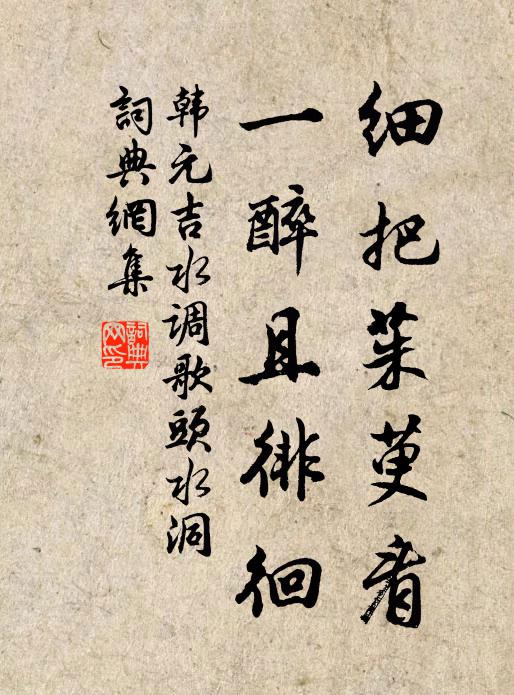 细把茱萸看
一醉且徘徊
韩元吉水调歌頭水洞
詞典網集
詞典網印